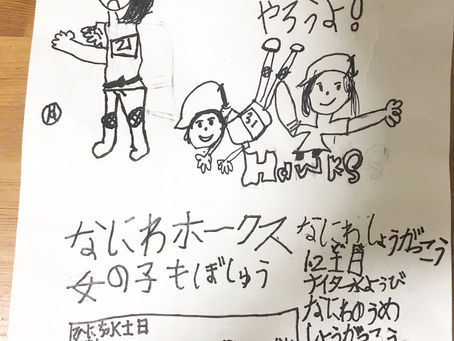 やろうよ!
21
31
HawkS
なにわホークス
女の子もぼしゅう
なにわしょうがっこう
土日
ナイター水ようび
なにわうめ
しょうがっこう
水土日